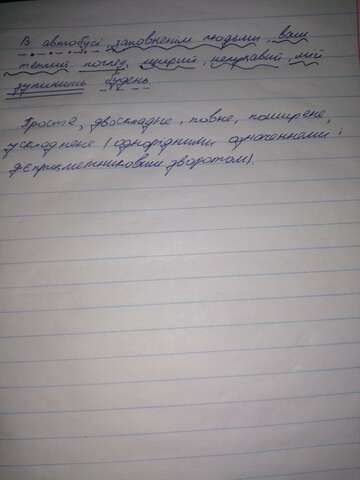 В автобусі заповненім людьми, ваш
теплий погляд, щирий, нелукавий, мій
зупинить будень.
Просте, двоскладне, повне, поширене,
ускладнене (однорідними означеннями і
дієприкметниковим зворотом).